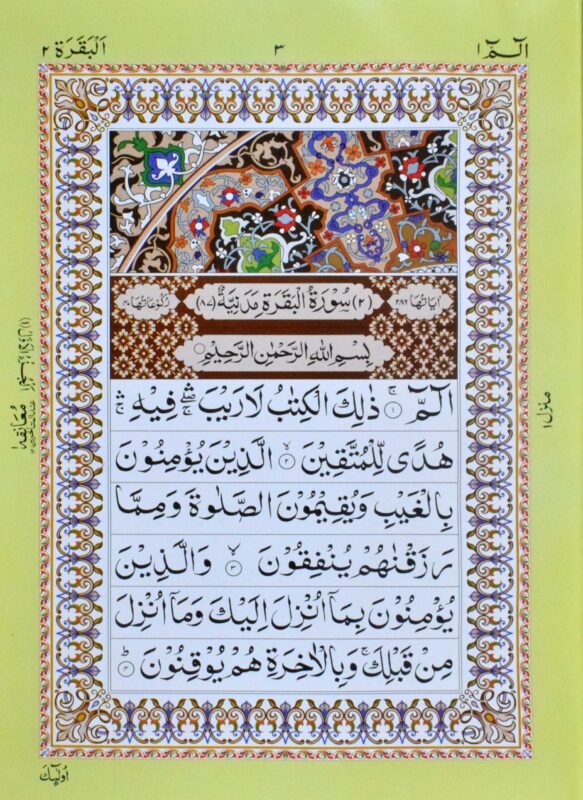 الٓمّٓ ۱
۳
اَلْبَقَرَة ۲
اٰيَاتُهَا ۲۸۶
(۲) سُوْرَةُ الْبَقَرَةِ مَدَنِيَّةٌ (۸۷)
رُكُوْعَاتُهَا ۴۰
بِسْمِ اللهِ الرَّحْمٰنِ الرَّحِيْمِ
الٓمّٓ ۚ ۱ ذٰلِكَ الْكِتٰبُ لَا رَيْبَ ۖۛ فِيْهِ ۚۛ
هُدًى لِّلْمُتَّقِيْنَ ۙ ۲ الَّذِيْنَ يُؤْمِنُوْنَ
بِالْغَيْبِ وَيُقِيْمُوْنَ الصَّلٰوةَ وَمِمَّا
رَزَقْنٰهُمْ يُنْفِقُوْنَ ۙ ۳ وَالَّذِيْنَ
يُؤْمِنُوْنَ بِمَاۤ اُنْزِلَ اِلَيْكَ وَمَاۤ اُنْزِلَ
مِنْ قَبْلِكَ ۚ وَبِالْاٰخِرَةِ هُمْ يُوْقِنُوْنَ ؕ ۴
منزل ۱
معانقة
اُولٰٓئِكَ